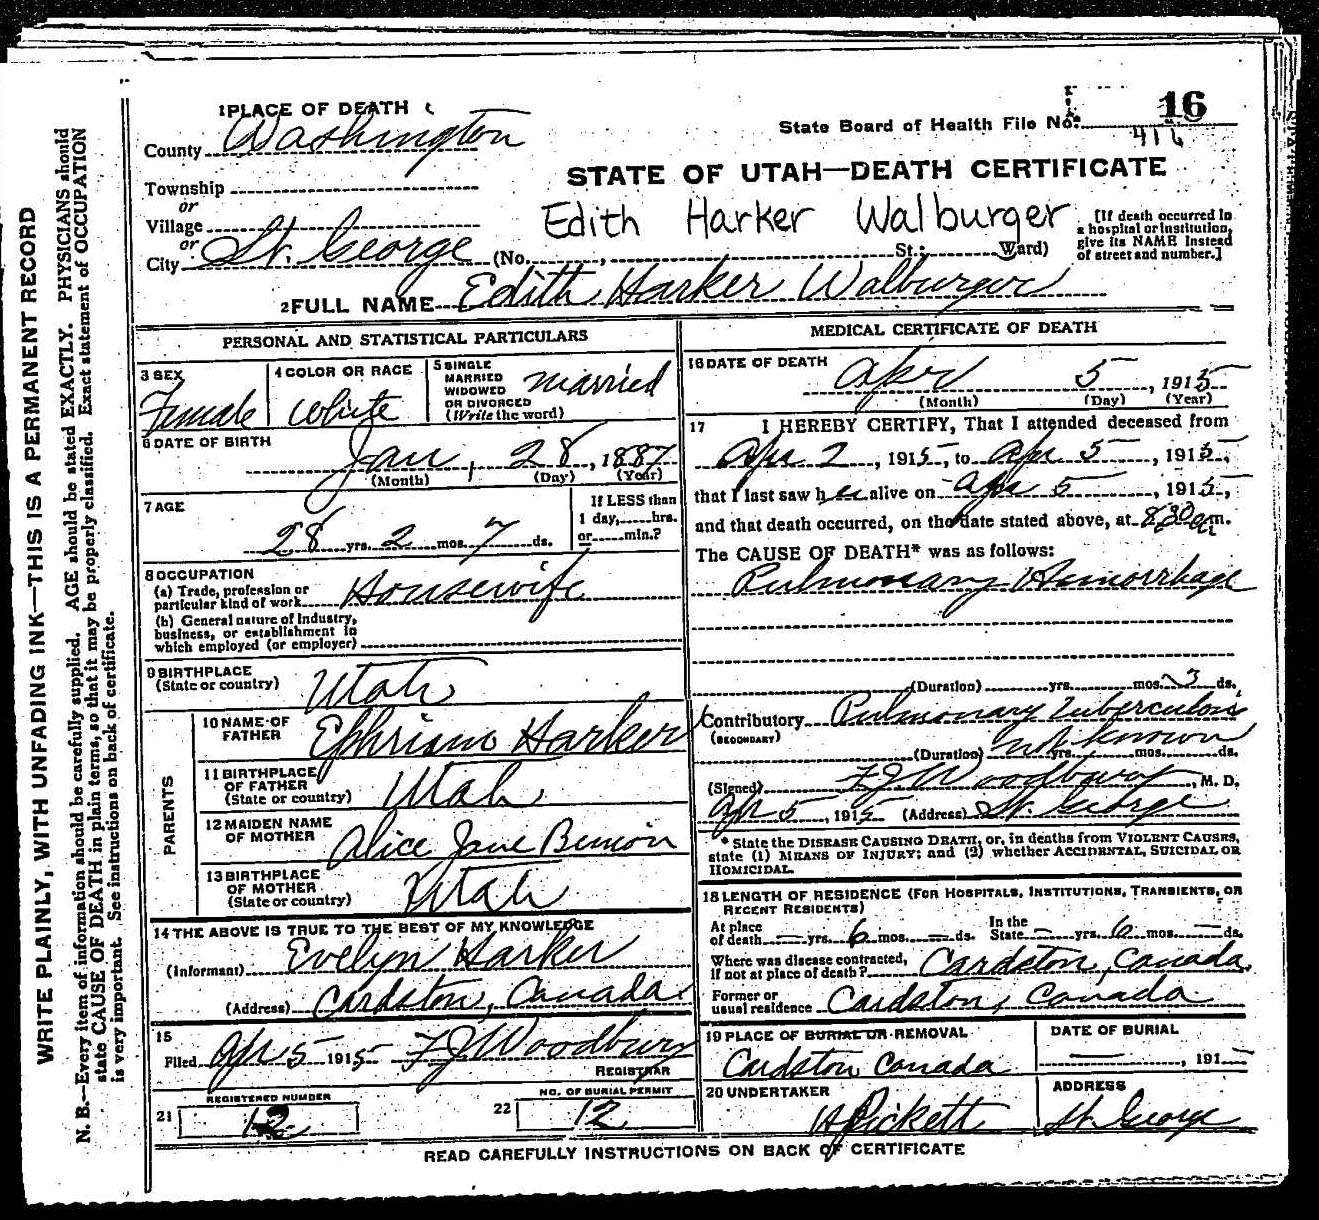 WRITE PLAINLY, WITH UNFADING INK—THIS IS A PERMANENT RECORD
N. B.—Every item of information should be carefully supplied. AGE should be stated EXACTLY. PHYSICIANS should
state CAUSE OF DEATH in plain terms, so that it may be properly classified. Exact statement of OCCUPATION
is very important. See instructions on back of certificate.
1 PLACE OF DEATH
County Washington
Township
or
Village
or
City St. George (No. , St.; Ward)
State Board of Health File No. 16
416
STATE OF UTAH—DEATH CERTIFICATE
Edith Harker Walburger
[If death occurred in
a hospital or institution,
give its NAME instead
of street and number.]
2 FULL NAME Edith Harker Walburger
PERSONAL AND STATISTICAL PARTICULARS
3 SEX
Female
4 COLOR OR RACE
White
5 SINGLE
MARRIED
WIDOWED
OR DIVORCED
(Write the word)
married
6 DATE OF BIRTH
Jan, 28, 1887
(Month) (Day) (Year)
7 AGE
28 yrs. 2 mos. 7 ds.
If LESS than
1 day, hrs.
or min.?
8 OCCUPATION
(a) Trade, profession or
particular kind of work Housewife
(b) General nature of Industry,
business, or establishment in
which employed (or employer)
9 BIRTHPLACE
(State or country) Utah
PARENTS
10 NAME OF
FATHER Ephriam Harker
11 BIRTHPLACE
OF FATHER
(State or country) Utah
12 MAIDEN NAME
OF MOTHER Alice Jane Bennion
13 BIRTHPLACE
OF MOTHER
(State or country) Utah
14 THE ABOVE IS TRUE TO THE BEST OF MY KNOWLEDGE
(Informant) Evelyn Harker
(Address) Cardston, Canada
15
Filed Apr 5 1915 F J Woodbury
REGISTRAR
21 REGISTERED NUMBER
12
22 NO. OF BURIAL PERMIT
12
MEDICAL CERTIFICATE OF DEATH
16 DATE OF DEATH
Apr 5, 1915
(Month) (Day) (Year)
17 I HEREBY CERTIFY, That I attended deceased from
Apr 2, 1915, to Apr 5, 1915,
that I last saw her alive on Apr 5, 1915,
and that death occurred, on the date stated above, at 8:30 a m.
The CAUSE OF DEATH* was as follows:
Pulmonary Hemorrhage
(Duration) yrs. mos. 3 ds.
Contributory Pulmonary Tuberculosis
(SECONDARY)
(Duration) not known yrs. mos. ds.
(Signed) F J Woodbury, M. D.
Apr 5, 1915 (Address) St. George
* State the DISEASE CAUSING DEATH, or, in deaths from VIOLENT CAUSES,
state (1) MEANS OF INJURY; and (2) whether ACCIDENTAL, SUICIDAL OR
HOMICIDAL.
18 LENGTH OF RESIDENCE (FOR HOSPITALS, INSTITUTIONS, TRANSIENTS, OR
RECENT RESIDENTS)
At place
of death — yrs. 6 mos. — ds.
In the
State — yrs. 6 mos. — ds.
Where was disease contracted,
if not at place of death? Cardston, Canada
Former or
usual residence Cardston, Canada
19 PLACE OF BURIAL OR REMOVAL
Cardston Canada
DATE OF BURIAL
—, 191
20 UNDERTAKER
Pickett
ADDRESS
St. George
READ CAREFULLY INSTRUCTIONS ON BACK OF CERTIFICATE